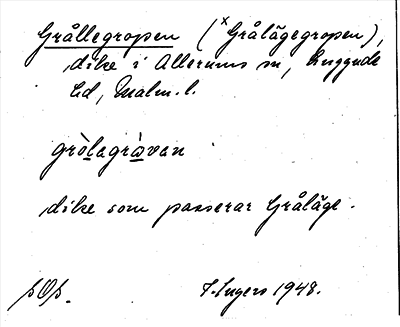 Grållegropen (ˣGrålägegropen),
dike i Allerums sn, Luggude
hd, Malm. l.
gròlagràvan
dike som passerar Gråläge.
pOp. F. Ingers 1948.